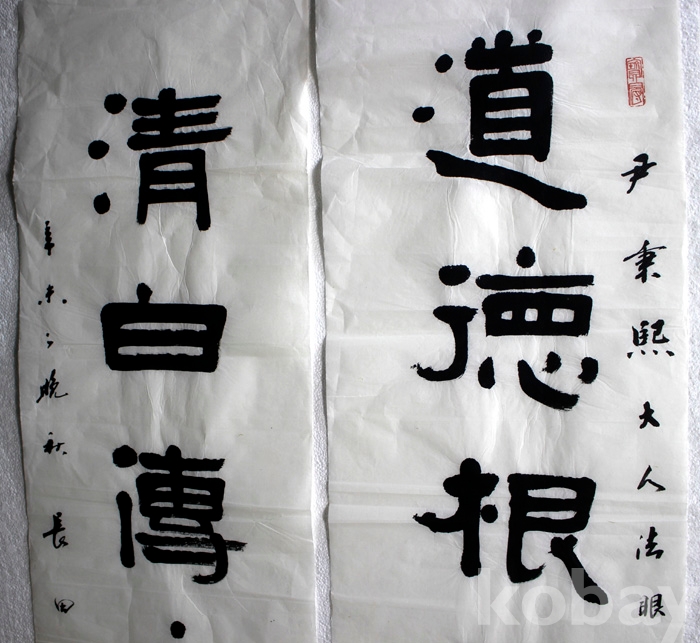 尹秉熙大人法眼
道德根
清白傳
辛未之晚秋 長田
kobay